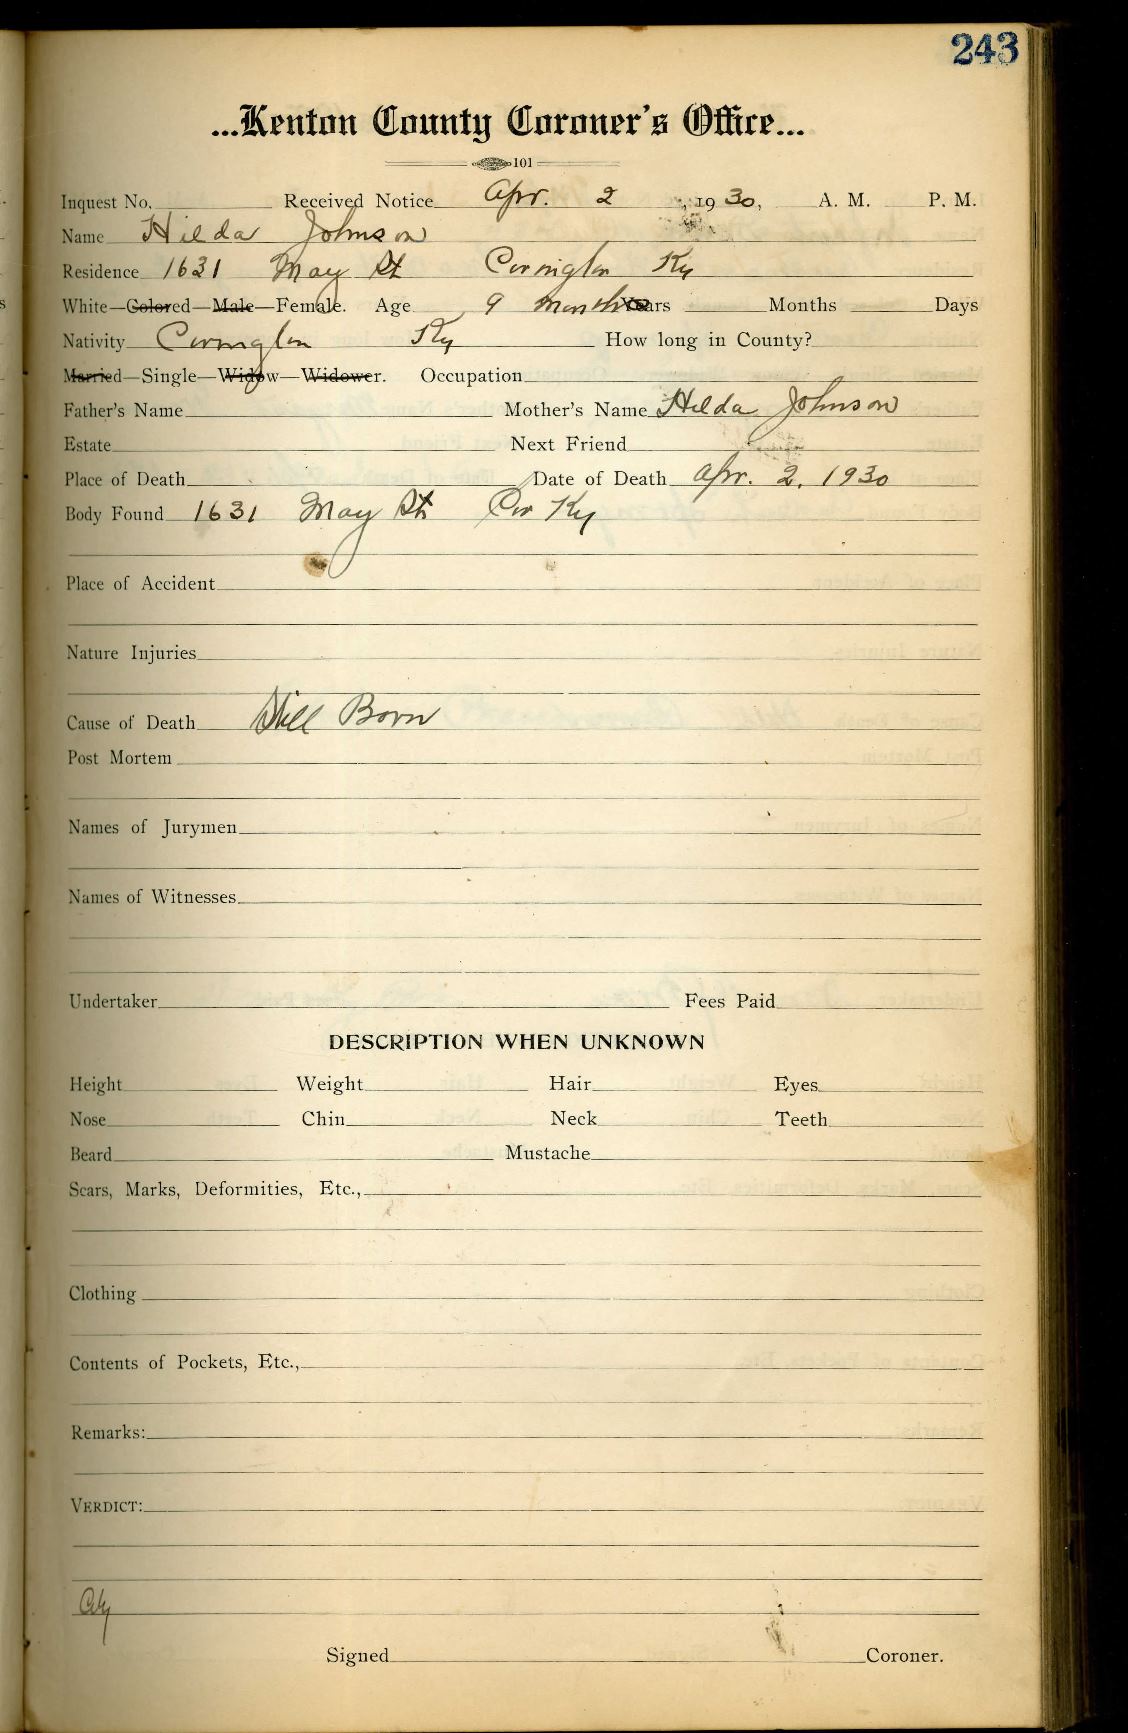 243
...Kenton County Coroner's Office...
101
Inquest No. Received Notice Apr. 2, 1930, A. M. P. M.
Name Hilda Johnson
Residence 1631 May St Covington Ky
White—Colored—Male—Female. Age 9 months Years Months Days
Nativity Covington Ky How long in County?
Married—Single—Widow—Widower. Occupation
Father's Name Mother's Name Hilda Johnson
Estate Next Friend
Place of Death Date of Death Apr. 2, 1930
Body Found 1631 May St Cov Ky
Place of Accident
Nature Injuries
Cause of Death Still Born
Post Mortem
Names of Jurymen
Names of Witnesses
Undertaker Fees Paid
DESCRIPTION WHEN UNKNOWN
Height Weight Hair Eyes
Nose Chin Neck Teeth
Beard Mustache
Scars, Marks, Deformities, Etc.,
Clothing
Contents of Pockets, Etc.,
Remarks:
VERDICT:
City
Signed Coroner.